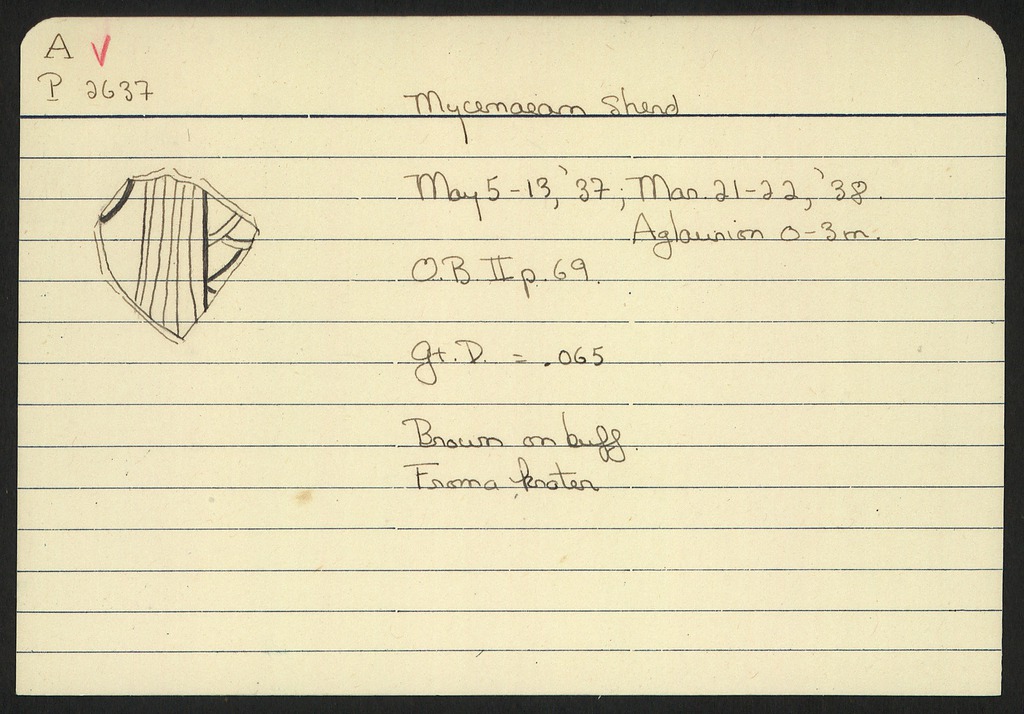 A
P 2637
Mycenaean Sherd
May 5-13, '37; Mar. 21-22, '38.
Aglaurion 0-3m.
O.B. II p. 69.
Gt. D. = .065
Brown on buff.
From a krater